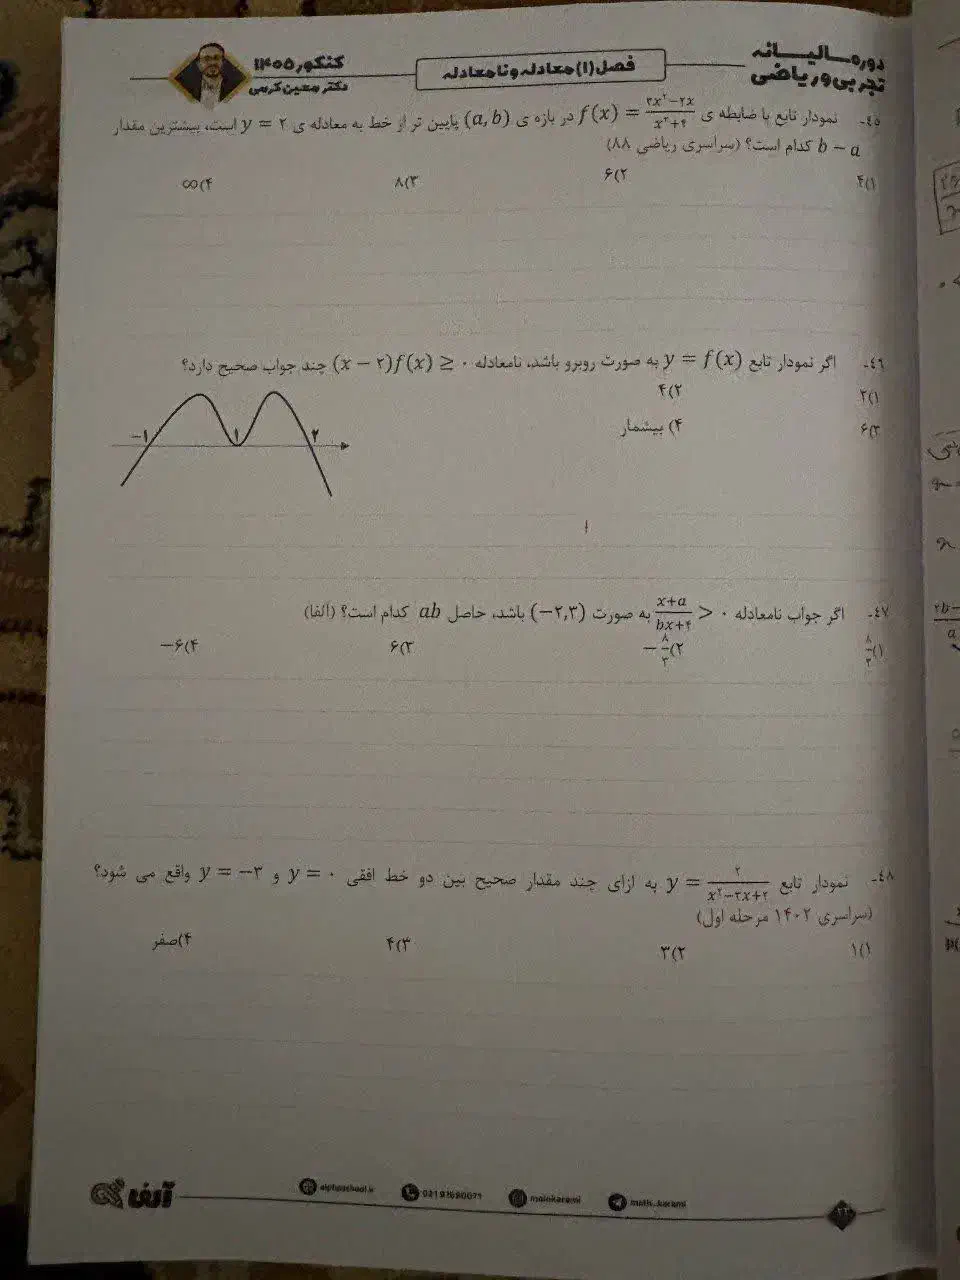 دوره سالیانه
تجربی و ریاضی
فصل (۱) معادله و نامعادله
کنکور ۱۴۰۵
دکتر معین کرمی
۴۵- نمودار تابع با ضابطه ی f(x) = (۳x²−۲x)/(x²+۴) در بازه ی (a, b) پایین تر از خط به معادله ی y = ۲ است، بیشترین مقدار
b − a کدام است؟ (سراسری ریاضی ۸۸)
۱) ۴ ۲) ۶ ۳) ۸ ۴) ∞
۴۶- اگر نمودار تابع y = f(x) به صورت روبرو باشد، نامعادله (x − ۲)f(x) ≥ ۰ چند جواب صحیح دارد؟
۱) ۲ ۲) ۴
۳) ۶ ۴) بیشمار
−۱ ۱ ۲
۴۷- اگر جواب نامعادله (x+a)/(bx+۴) > ۰ به صورت (−۲,۳) باشد، حاصل ab کدام است؟ (آلفا)
۱) ۸/۳ ۲) −۸/۳ ۳) ۶ ۴) −۶
۴۸- نمودار تابع y = ۲/(x²−۳x+۲) به ازای چند مقدار صحیح بین دو خط افقی y = ۰ و y = −۳ واقع می شود؟
(سراسری ۱۴۰۲ مرحله اول)
۱) ۱ ۲) ۳ ۳) ۴ ۴) صفر
آلفا
alphaschool.ir
02191690071
moinkarami
math_karami